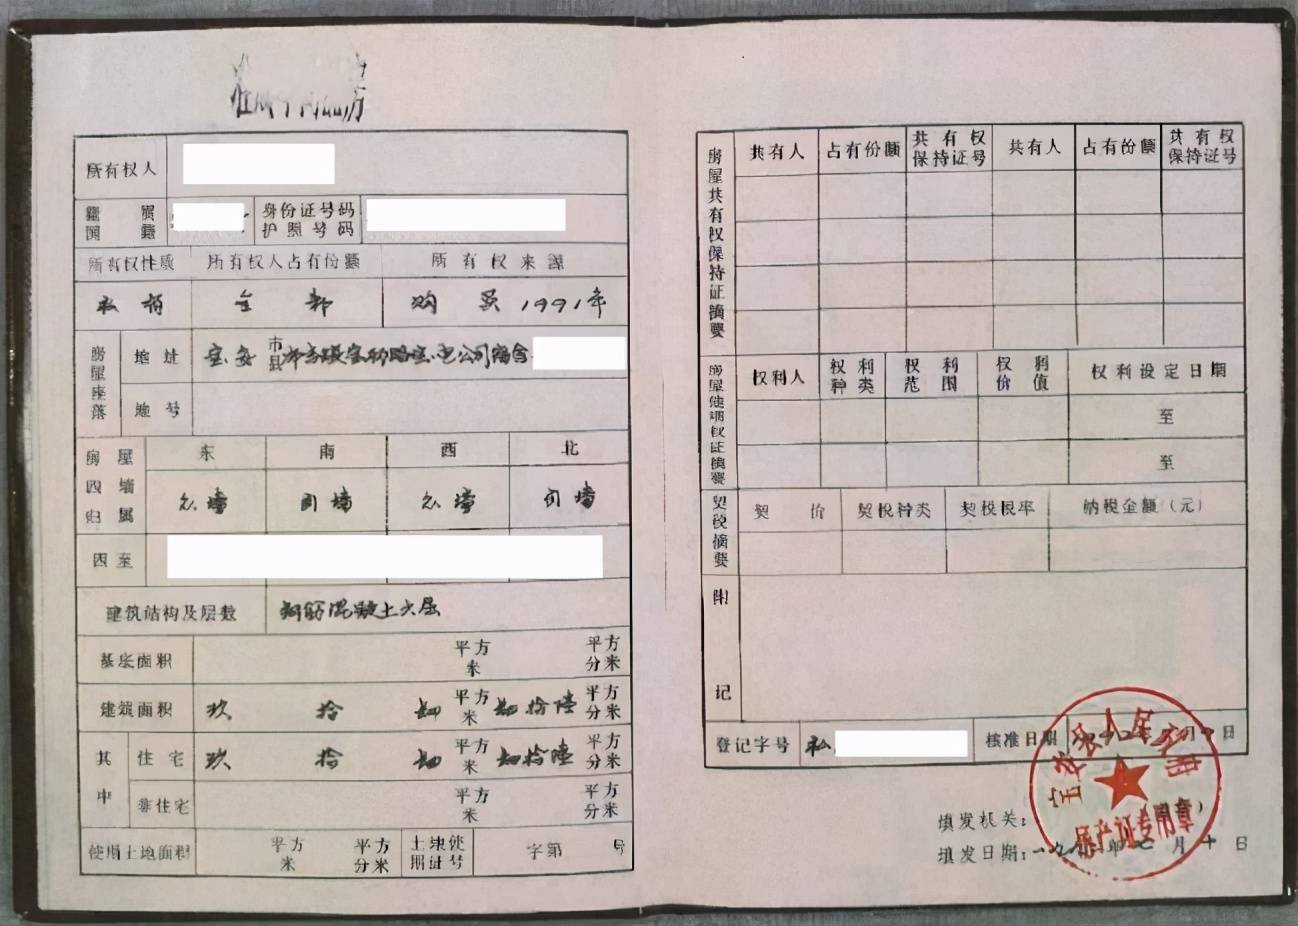 准成本商品房
所有权人
籍贯 国籍 身份证号码 护照号码
所有权性质 所有权人占有份额 所有权来源
私有 全部 购买 1991年
房屋座落 地址 宝安 市县 宝电公司宿舍
地号
房屋四墙归属 东 南 西 北
自墙 自墙
四至
建筑结构及层数 钢筋混凝土六层
基底面积 平方米 平方分米
建筑面积 玖 拾 平方米 拾陆 平方分米
其中 住宅 玖 拾 平方米 拾陆 平方分米
非住宅 平方米 平方分米
使用土地面积 平方米 平方分米 土地使用证号 字第 号
房屋共有权保持证摘要 共有人 占有份额 共有权保持证号 共有人 占有份额 共有权保持证号
房屋他项权证摘要 权利人 权利种类 权利范围 权利价值 权利设定日期
至
至
契税摘要 契价 契税种类 契税税率 纳税金额(元)
附记
登记字号 私 核准日期 月 日
宝安县人民政府
房产证专用章
填发机关:
填发日期:一九九 年七月十日